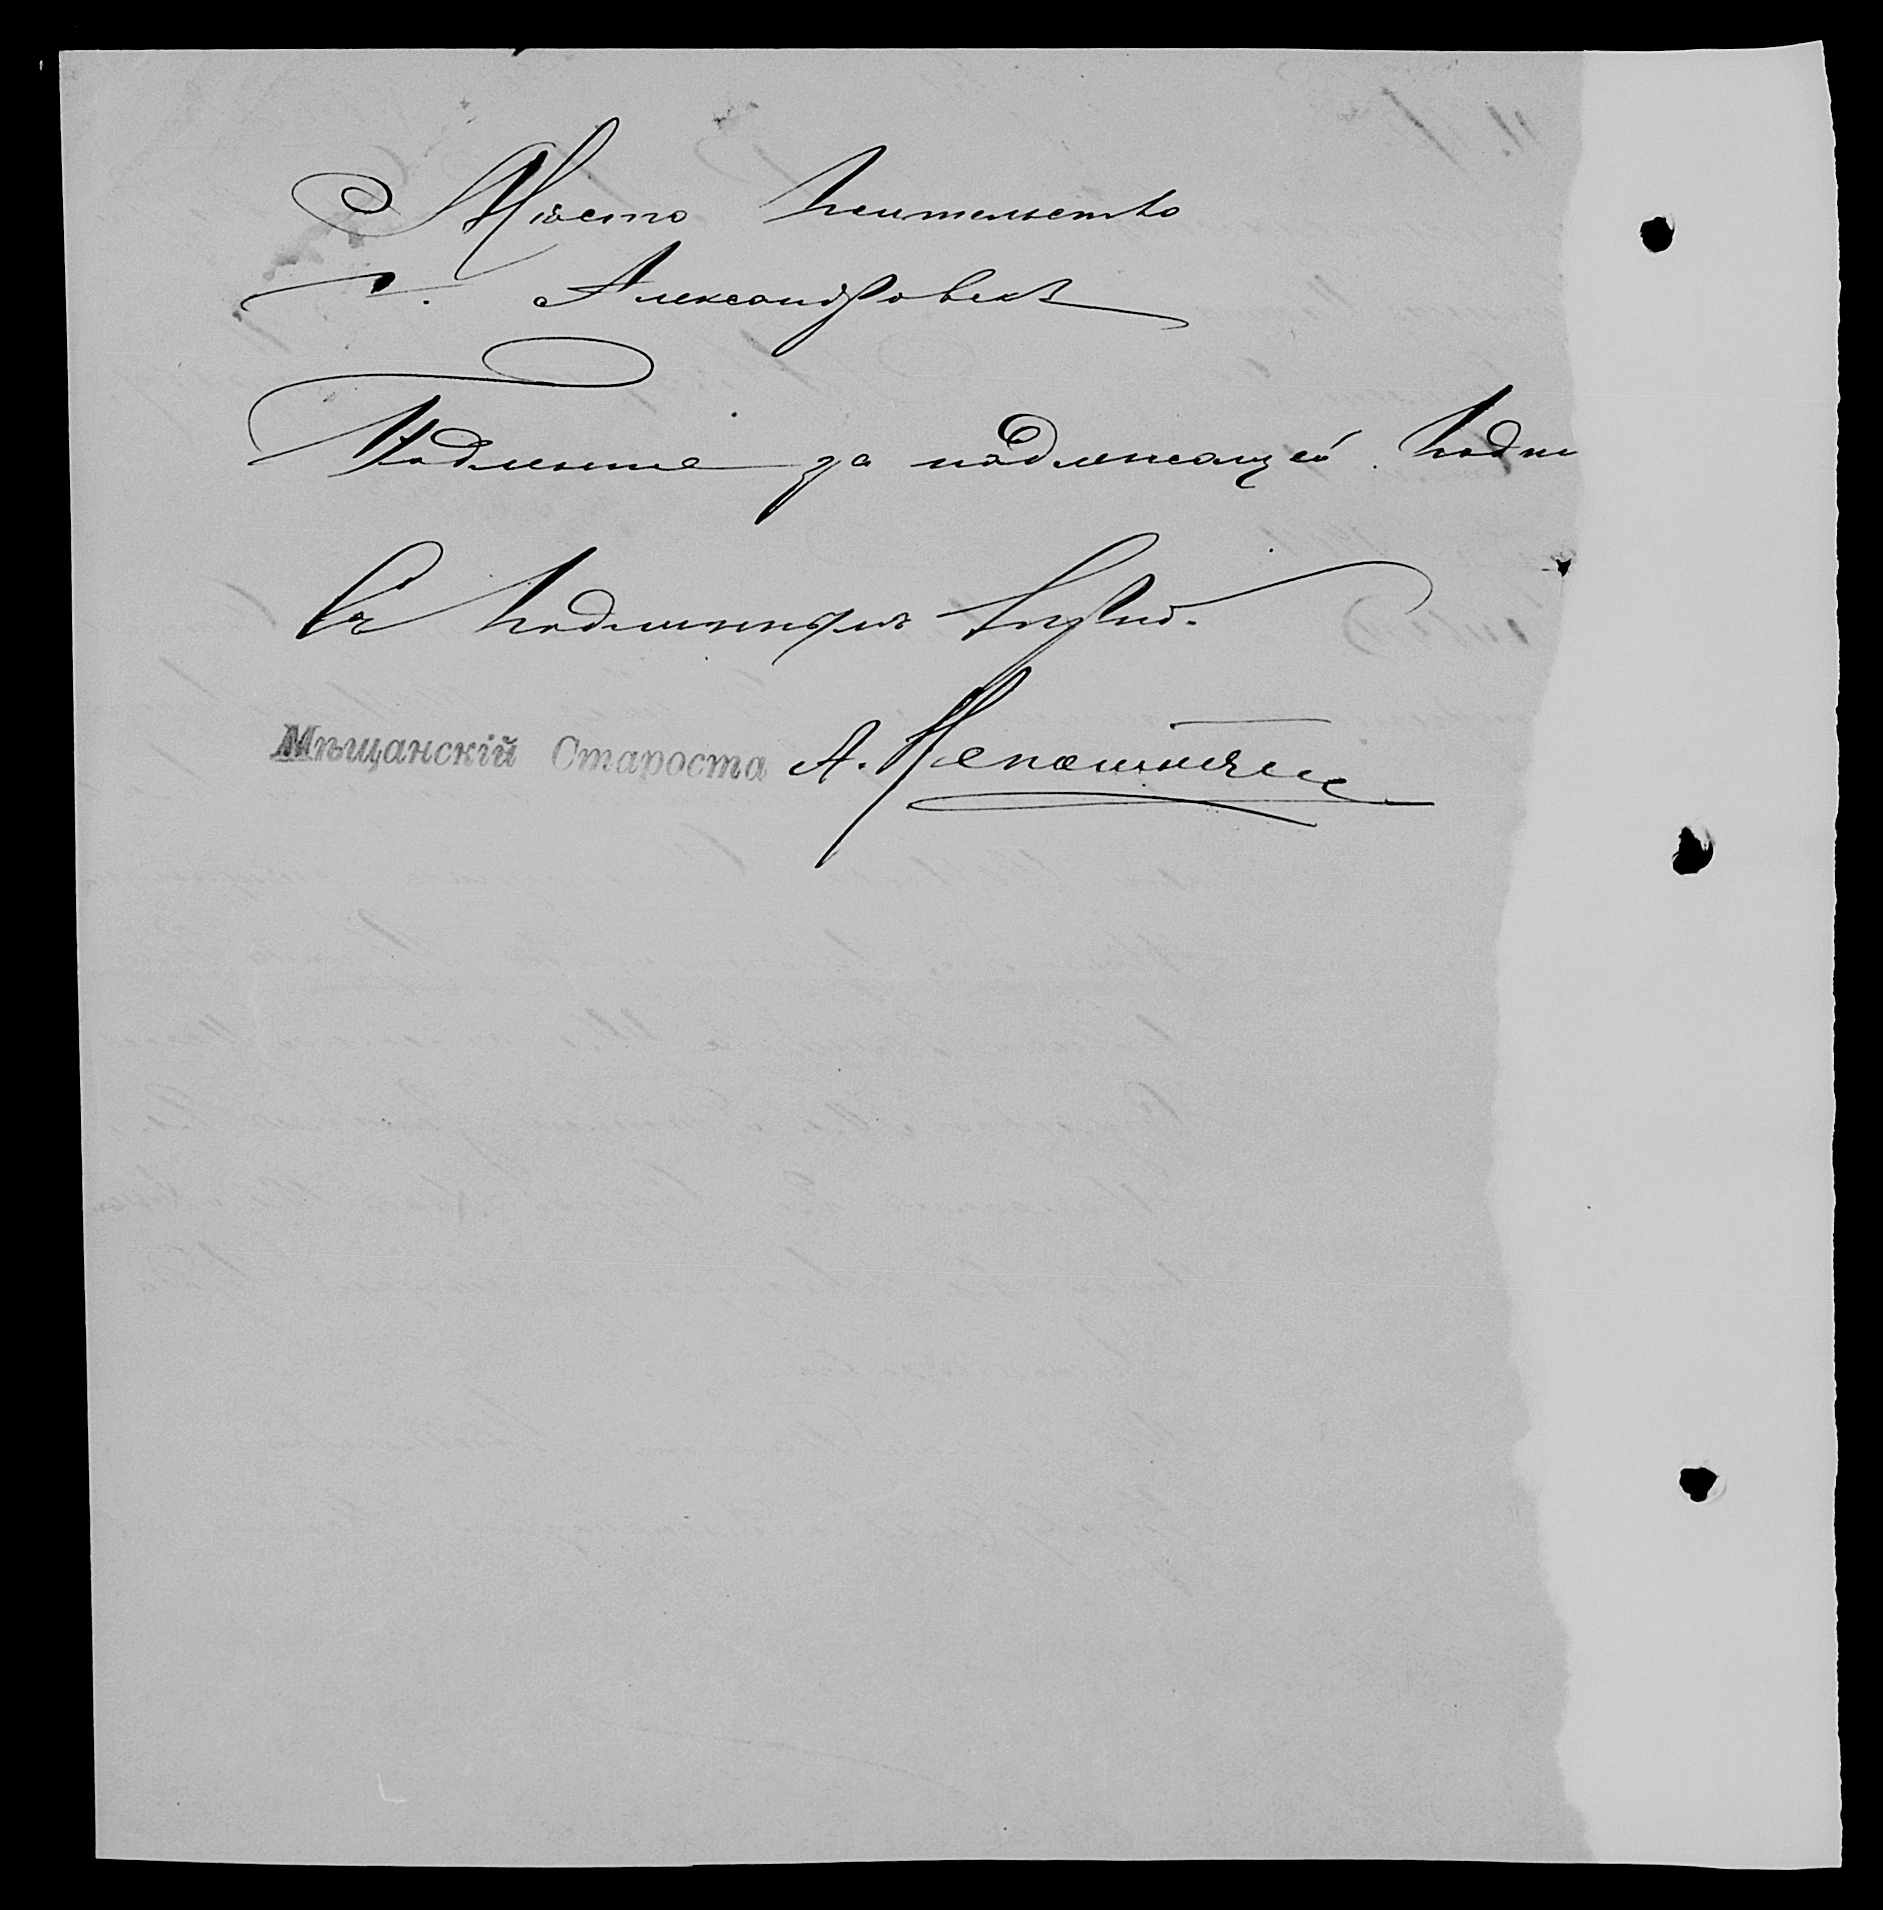 Мѣсто жительство
г. Александровскъ
Подленые за надлежащей подпи
Съ подлиннымъ вѣрно.
Мѣщанскій Староста А.